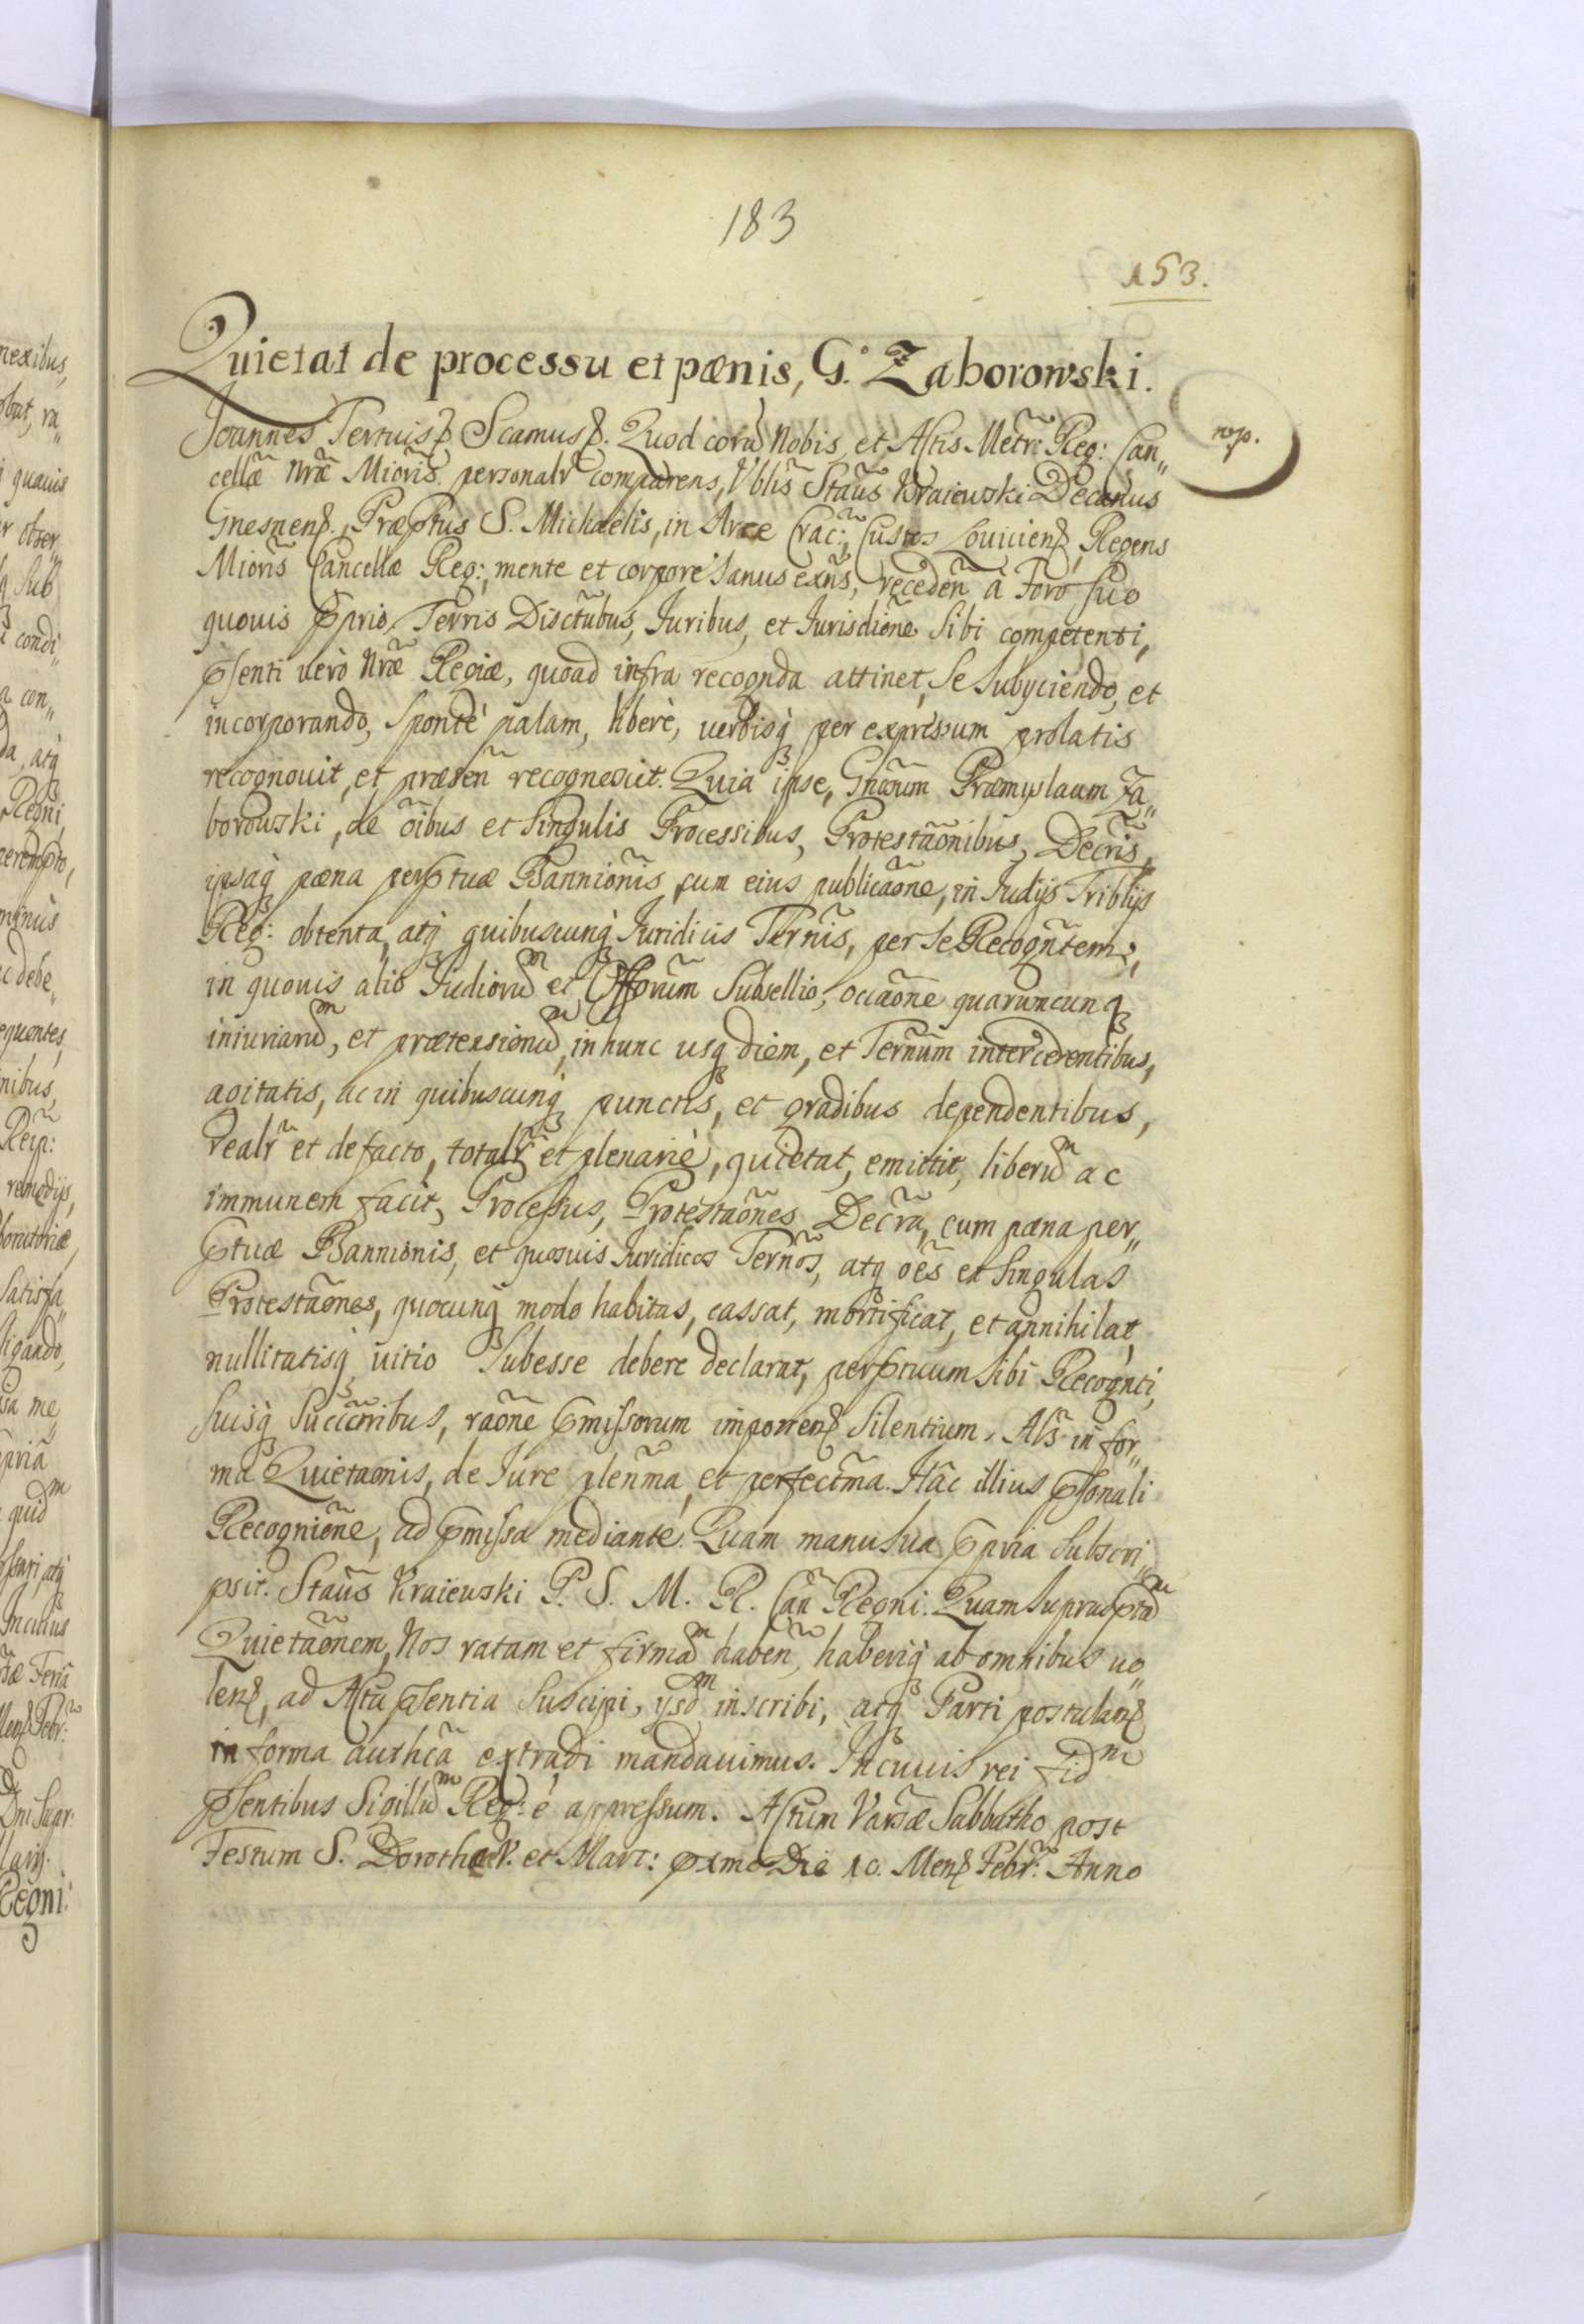 183
153.
Quietat de processu et pænis, G. Zaborowski.
Joannes Tertius &. Scamus &. Quod corã Nobis et Actis Metr: Reg: Can„
rep.
cellæ Nræ Mioris personalr comparens, Vblis Staũs Kraiewski Decanus
Gnesnen, Præptus S. Michaelis, in Arce Crac:, Custos Louicien, Regens
Mioris Cancellæ Reg:, mente et corpore sanus exñs, recedeñ à Foro suo
quouis pprio, Terris Disctubus, Iuribus, et Iurisdiõne sibi competenti,
pnsenti verò Nræ Regiæ, quoad infra recognda attinet, se subyciendo, et
incorporando, sponte palam, liberè, verbisq per expressum prolatis
recognouit, et præseñ recognoscit. Quia ipse, Gnõsum Præmyslaum Za„
borowski, de oĩbus et singulis Processibus, Protestãonibus, Decris,
ipsaq pæna perptuæ Bannionis, cum eius publicãone, in Iudijs Triblijs
Reg: obtenta, atq quibuscunq Iuridicis Termis, per se Recogñtem,
in quouis alio Iudiorũm et Offorum Subsellio, occãone quarumcunq
iniuriarũm, et prætensionũm, in hunc usq diem, et Termum intercedentibus,
agitatis, ac in quibuscunq punctis, et gradibus dependentibus,
realr et de facto, totalr et plenariè, quietat, emittit, liberũm ac
immunem facit, Processus, Protestãones, Decra, cum pæna per„
ptuæ Bannionis, et quosuis Iuridicos Termos, atq oẽs et singulas
Protestãones, quocunq modo habitas, cassat, mortificat, et annihilat,
nullitatisq uitio subesse debere declarat, perptuum sibi Recognti,
suisq Succõribus, raõne pmissorum imponen silentium. Als in for„
ma Quietaonis, de Iure pleñma, et perfectma. Hac illius psonali
Recogniõne, ad pmissa mediante. Quam manu sua ppria subscri„
psit. Staũs Kraiewski P. S. M. R. Cañ Regni. Quam supradptãm
Quietãonem, Nos ratam et firmãm habeñ, haberiq ab omnibus uo„
len, ad Acta pnsentia suscipi, ysdm inscribi, atq Parti postulan
in forma authcã extradi mandauimus. In cuius rei fidm
pnsentibus Sigillũm Reg: é appressum. Actum Varsæ Sabbatho post
Festum S. Dorotheæ V. et Mart: pxmo Die 10. Men Febr: Anno